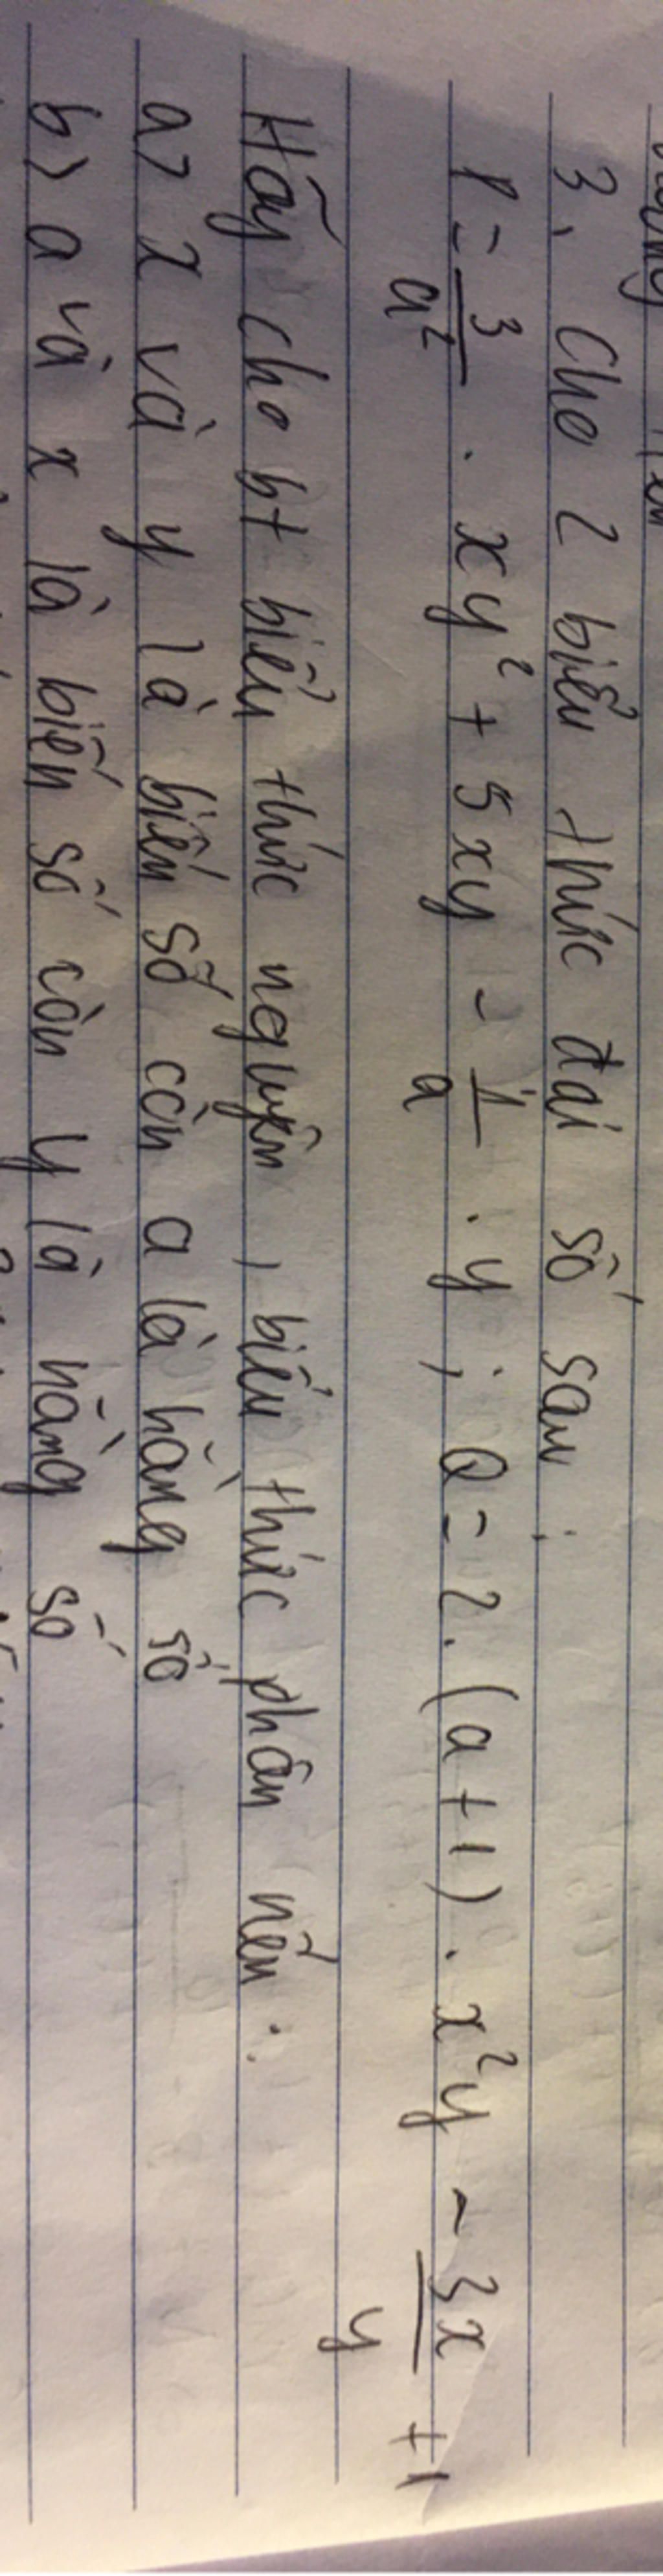 3, Cho 2 biểu thức đại số sau:
P = 3/a² . xy² + 5xy - 1/a . y ; Q = 2.(a+1).x²y - 3x/y + 1
Hãy cho bt biểu thức nguyên, biểu thức phân nếu:
a> x và y là biến số còn a là hằng số
b> a và x là biến số còn y là hằng số